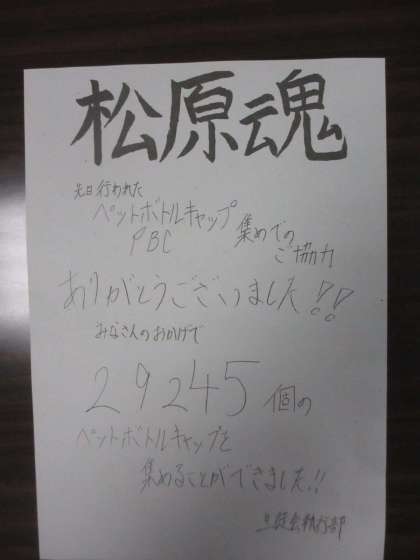 松原魂
先日行われた
ペットボトルキャップ
PBC
集めでの
ご協力
ありがとうございました!!
みなさんのおかげで
29245個の
ペットボトルキャップを
集めることができました!!
生徒会執行部